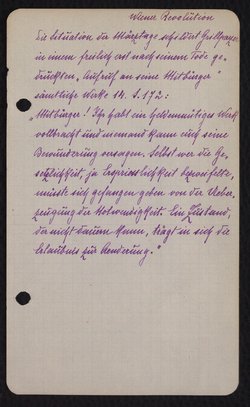 Wiener Revolution
Die Situation der Märztage reflektiert Grillparzer
in einem freilich erst nach seinem Tode ge-
druckten „Aufruf an seine Mitbürger"
sämtliche Werke 14. S. 172:
Mitbürger! Ihr habt ein heldenmütiges Werk
vollbracht und niemand kann euch seine
Bewunderung versagen. Selbst wer die Ge-
setzlichkeit, ja Erspriesslichkeit bezweifelte,
müsste sich gefangen geben von der Ueber-
zeugung der Notwendigkeit. Ein Zustand,
der nicht dauern kann, trägt in sich die
Erlaubnis zur Aenderung."